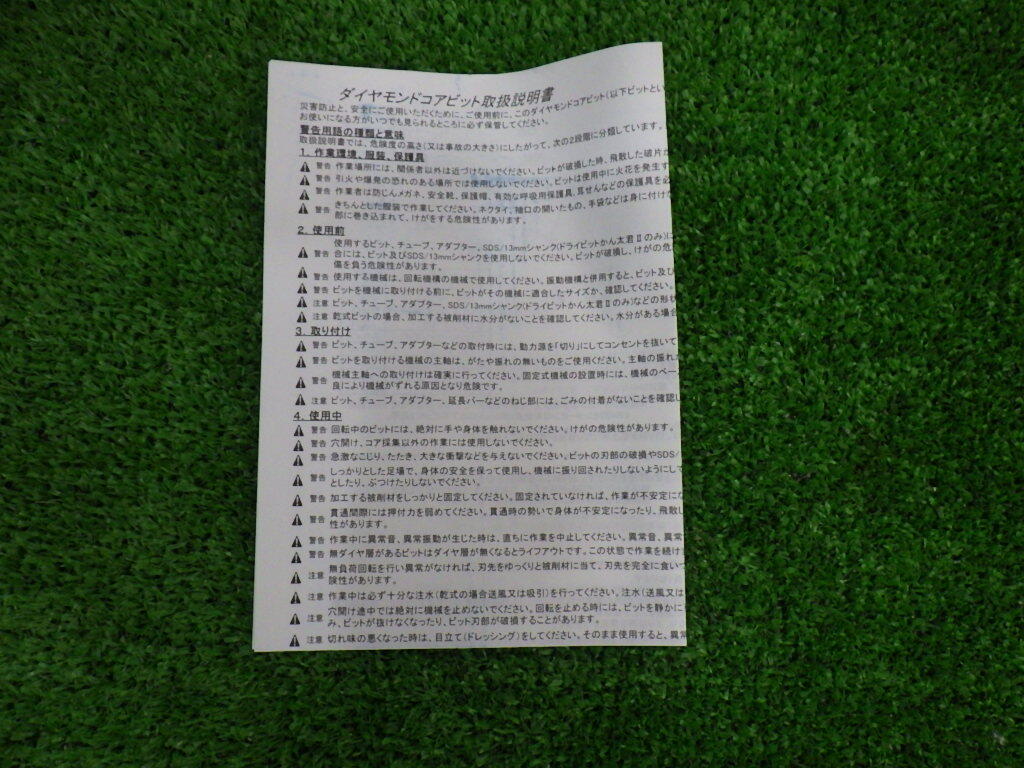 ダイヤモンドコアビット取扱説明書
災害防止と、安全にご使用いただくために、ご使用前に、このダイヤモンドコアビット(以下ビットとい
お使いになる方がいつでも見られるところに必ず保管してください。
警告用語の種類と意味
取扱説明書では、危険度の高さ(又は事故の大きさ)にしたがって、次の2段階に分類しています。
1. 作業環境、服装、保護具
警告 作業場所には、関係者以外は近づけないでください。ビットが破損した時、飛散した破片が
警告 引火や爆発の恐れのある場所では使用しないでください。ビットは使用中に火花を発生す
警告 作業者は防じんメガネ、安全靴、保護帽、有効な呼吸用保護具、耳せんなどの保護具を必
警告 きちんとした服装で作業してください。ネクタイ、袖口の開いたもの、手袋などは身に付けな
部に巻き込まれて、けがをする危険性があります。
2. 使用前
使用するビット、チューブ、アダプター、SDS/13mmシャンク(ドライビットかん太君Ⅱのみ)に
警告 合には、ビット及びSDS/13mmシャンクを使用しないでください。ビットが破損し、けがの危
傷を負う危険性があります。
警告 使用する機械は、回転機構の機械で使用してください。振動機構と併用すると、ビット及び
警告 ビットを機械に取り付ける前に、ビットがその機械に適合したサイズか、確認してください。
注意 ビット、チューブ、アダプター、SDS/13mmシャンク(ドライビットかん太君Ⅱのみ)などの形状
注意 乾式ビットの場合、加工する被削材に水分がないことを確認してください。水分がある場合
3. 取り付け
警告 ビット、チューブ、アダプターなどの取付時には、動力源を「切り」にしてコンセントを抜いて
警告 ビットを取り付ける機械の主軸は、がたや振れの無いものをご使用ください。主軸の振れ
警告 機械主軸への取り付けは確実に行ってください。固定式機械の設置時には、機械のベー
良により機械がずれる原因となり危険です。
注意 ビット、チューブ、アダプター、延長バーなどのねじ部には、ごみの付着がないことを確認し
4. 使用中
警告 回転中のビットには、絶対に手や身体を触れないでください。けがの危険性があります。
警告 穴開け、コア採集以外の作業には使用しないでください。
警告 急激なこじり、たたき、大きな衝撃などを与えないでください。ビットの刃部の破損やSDS/
警告 しっかりとした足場で、身体の安全を保って使用し、機械に振り回されたりしないようにして
としたり、ぶつけたりしないでください。
警告 加工する被削材をしっかりと固定してください。固定されていなければ、作業が不安定にな
警告 貫通間際には押付力を弱めてください。貫通時の勢いで身体が不安定になったり、飛散し
性があります。
警告 作業中に異常音、異常振動が生じた時は、直ちに作業を中止してください。異常音、異常
警告 無ダイヤ層があるビットはダイヤ層が無くなるとライフアウトです。この状態で作業を続け
注意 無負荷回転を行い異常がなければ、刃先をゆっくりと被削材に当て、刃先を完全に食いつ
険性があります。
注意 作業中は必ず十分な注水(乾式の場合送風又は吸引)を行ってください。注水(送風又は
注意 穴開け途中では絶対に機械を止めないでください。回転を止める時には、ビットを静かに
み、ビットが抜けなくなったり、ビット刃部が破損することがあります。
注意 切れ味の悪くなった時は、目立て(ドレッシング)をしてください。そのまま使用すると、異常